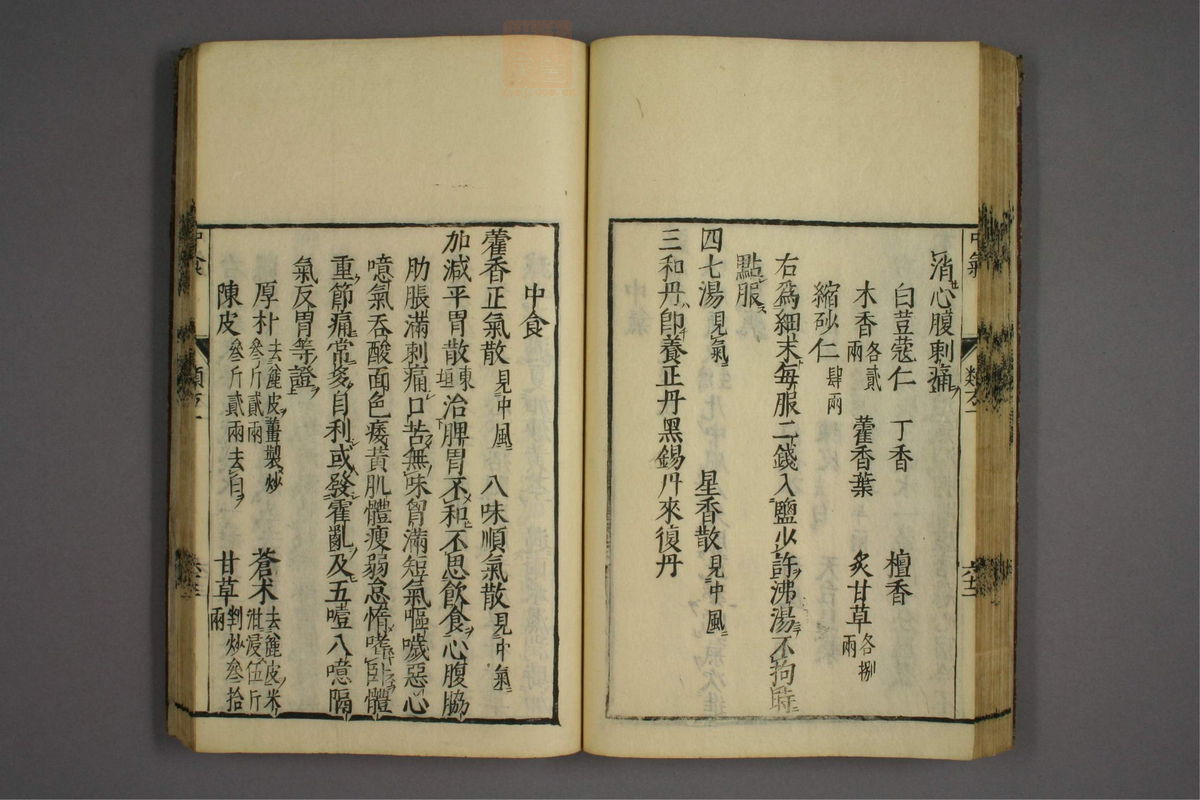 中氣
類方一
消心腹刺痛
白荳蔻仁 丁香 檀香
木香各貳兩 藿香葉 炙甘草各捌兩
縮砂仁肆兩
右為細末毎服二錢入鹽少許沸湯不拘時
點服
四七湯見氣 星香散見中風
三和丹即養正丹黑錫丹來復丹
中食
藿香正氣散見中風 八味順氣散見中氣
加減平胃散東垣治脾胃不和不思飲食心腹脇
肋脹滿刺痛口苦無味胷滿短氣嘔噦惡心
噫氣吞酸面色痿黃肌體瘦弱怠惰嗜卧體
重節痛常多自利或發霍亂及五噎八噫隔
氣反胃等證
厚朴去麁皮薑製炒叁斤貳兩 蒼术去麁皮米泔浸伍斤
陳皮叁斤貳兩去白 甘草剉炒叁拾兩
中食